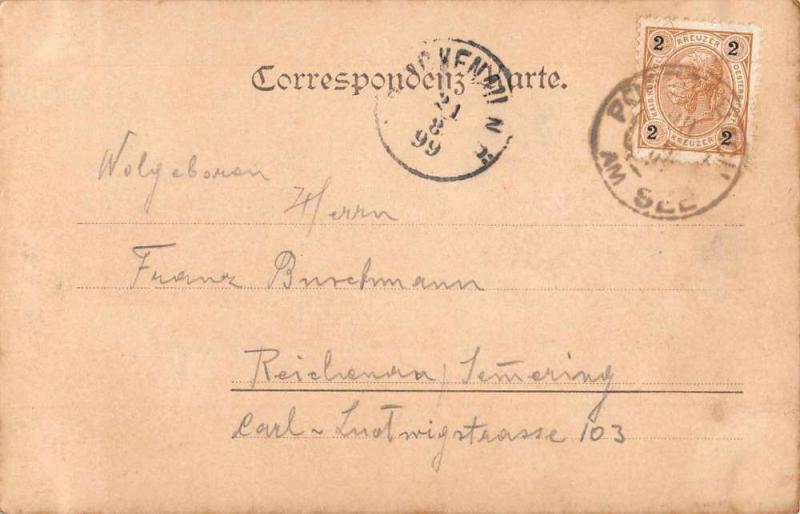 Correspondenz-Karte.
21
8
99
2 KREUZER 2
2 KREUZER 2
AM SEE
Wolgeboren
Herrn
Franz Buschmann
Reichenau, Semering
Carl-Ludwigstrasse 103